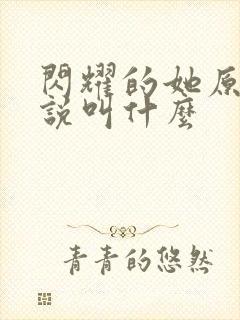 閃耀的她原
說叫什麼
青青的悠然